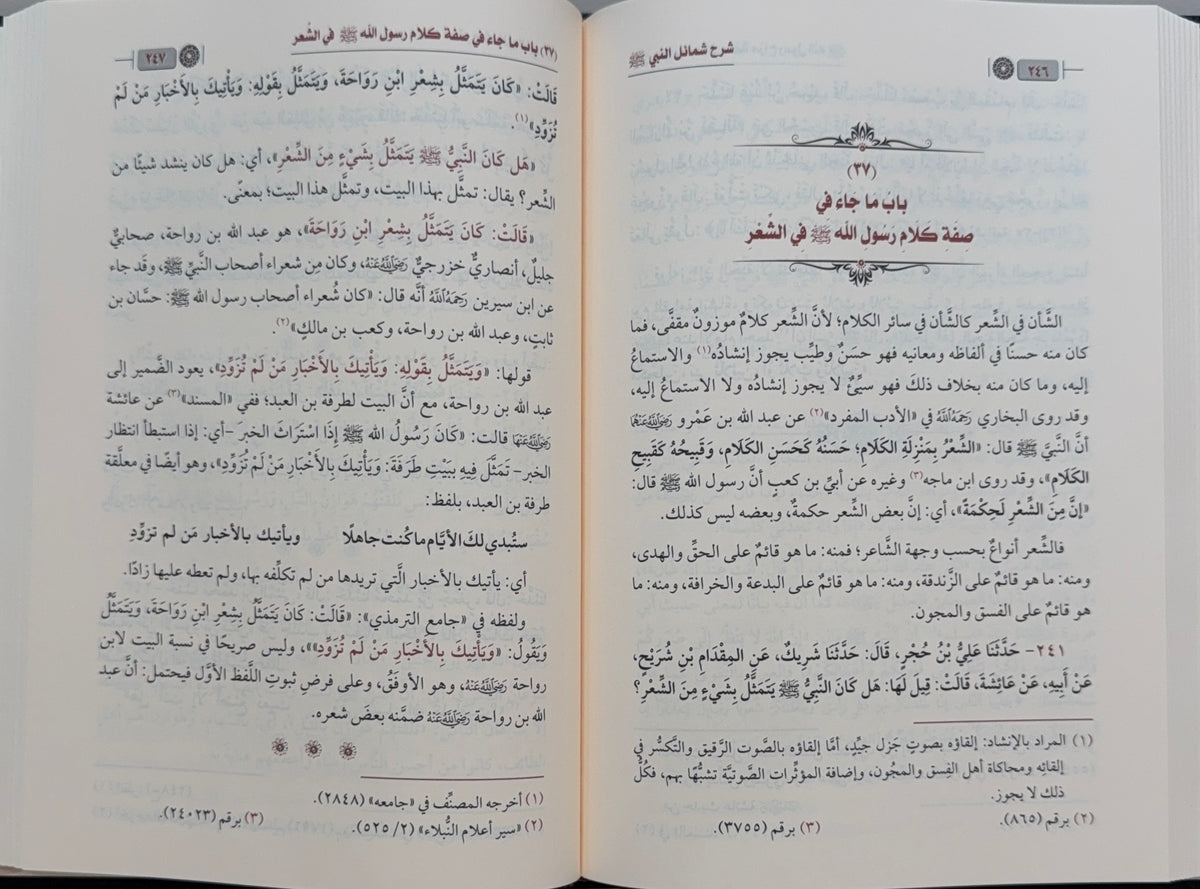 شرح شمائل النبي ﷺ
٢٤٦
(٣٧)
باب ما جاء في
صفة كلام رسول الله ﷺ في الشعر
الشَّأن في الشِّعر كالشَّأن في سائر الكلام؛ لأنَّ الشِّعر كلامٌ موزونٌ مقفَّى، فما
كان منه حسنًا في ألفاظه ومعانيه فهو حسَنٌ وطيِّب يجوز إنشادُه(١) والاستماعُ
إليه، وما كان منه بخلاف ذلكَ فهو سيِّئٌ لا يجوز إنشادُه ولا الاستماعُ إليه،
وقد روى البخاري رَحِمَهُ اللَّهُ في «الأدب المفرد»(٢) عن عبد الله بن عَمْرو رَضِيَ اللَّهُ عَنْهُمَا
أنَّ النَّبيَّ ﷺ قال: «الشِّعْرُ بِمَنْزِلَةِ الكَلَامِ؛ حَسَنُهُ كَحَسَنِ الكَلَامِ، وَقَبِيحُهُ كَقَبِيحِ
الكَلَامِ»، وقد روى ابن ماجه(٣) وغيره عن أبيِّ بن كعبٍ أنَّ رسول الله ﷺ قال:
«إِنَّ مِنَ الشِّعْرِ لَحِكْمَةً»، أي: إنَّ بعض الشِّعر حكمةٌ، وبعضه ليس كذلك.
فالشِّعر أنواعٌ بحسب وجهة الشَّاعر؛ فمنه: ما هو قائمٌ على الحقِّ والهدى،
ومنه: ما هو قائم على الزَّندقة، ومنه: ما هو قائمٌ على البدعة والخرافة، ومنه: ما
هو قائمٌ على الفسق والمجون.
٢٤١- حَدَّثَنَا عَلِيُّ بْنُ حُجْرٍ، قَالَ: حَدَّثَنَا شَرِيكٌ، عَنِ المِقْدَامِ بْنِ شُرَيْحٍ،
عَنْ أَبِيهِ، عَنْ عَائِشَةَ، قَالَتْ: قِيلَ لَهَا: هَل كَانَ النَّبِيُّ ﷺ يَتَمَثَّلُ بِشَيْءٍ مِنَ الشِّعْرِ؟
(١) المراد بالإنشاد: إلقاؤه بصوتٍ جَزل جيِّدٍ، أمَّا إلقاؤه بالصَّوت الرَّقيق والتَّكسُّر في
إلقائِه ومحاكاة أهل الفِسق والمجُون، وإضافة المؤثِّرات الصَّوتيَّة تشبُّهًا بهم، فكُلُّ
ذلك لا يجوز.
(٢) برقم (٨٦٥).
(٣) برقم (٣٧٥٥).
(٣٧) باب ما جاء في صفة كلام رسول الله ﷺ في الشعر
٢٤٧
قَالَتْ: «كَانَ يَتَمَثَّلُ بِشِعْرِ ابْنِ رَوَاحَةَ، وَيَتَمَثَّلُ بِقَوْلِهِ: وَيَأْتِيكَ بِالأَخْبَارِ مَنْ لَمْ
تُزَوِّدِ»(١).
«هَل كَانَ النَّبِيُّ ﷺ يَتَمَثَّلُ بِشَيْءٍ مِنَ الشِّعْرِ»، أي: هل كان ينشد شيئًا من
الشِّعر؟ يقال: تمثَّل بهذا البيت، وتمثَّل هذا البيت؛ بمعنًى.
«قَالَتْ: كَانَ يَتَمَثَّلُ بِشِعْرِ ابْنِ رَوَاحَةَ»، هو عبد الله بن رواحة، صحابيٌّ
جليلٌ، أنصاريٌّ خزرجيٌّ رَضِيَ اللَّهُ عَنْهُ، وكان مِن شعراء أصحاب النَّبيِّ ﷺ، وقَد جاء
عن ابن سيرين رَحِمَهُ اللَّهُ أنَّه قال: «كان شُعراء أصحاب رسول الله ﷺ: حسَّان بن
ثابتٍ، وعبد الله بن رواحة، وكعب بن مالكٍ»(٢).
قولها: «وَيَتَمَثَّلُ بِقَوْلِهِ: وَيَأْتِيكَ بِالأَخْبَارِ مَنْ لَمْ تُزَوِّدِ»، يعود الضَّمير إلى
عبد الله بن رواحة، مع أنَّ البيت لطرفة بن العبد؛ ففي «المسند»(٣) عن عائشة
رَضِيَ اللَّهُ عَنْهَا قالت: «كَانَ رَسُولُ الله ﷺ إِذَا اسْتَرَاثَ الخبرَ –أي: إذا استبطأ انتظار
الخبر– تَمَثَّلَ فِيهِ بِبَيْتِ طَرَفَةَ: وَيَأْتِيكَ بِالأَخْبَارِ مَنْ لَمْ تُزَوِّدِ»، وهو أيضًا في معلَّقة
طرفة بن العبد، بلفظ:
ستُبدي لكَ الأيَّام ما كُنت جاهلًا ويأتيك بالأخبار مَن لم تزوِّدِ
أي: يأتيك بالأخبار الَّتي تريدها من لم تكلِّفه بها، ولم تعطه عليها زادًا.
ولفظه في «جامع الترمذي»: «قَالَتْ: كَانَ يَتَمَثَّلُ بِشِعْرِ ابْنِ رَوَاحَةَ، وَيَتَمَثَّلُ
وَيَقُولُ: «وَيَأْتِيكَ بِالأَخْبَارِ مَنْ لَمْ تُزَوِّدِ»»، وليس صريحًا في نسبة البيت لابن
رواحة رَضِيَ اللَّهُ عَنْهُ، وهو الأوفقُ، وعلى فرضِ ثبوتِ اللَّفظ الأوَّل فيحتمل: أنَّ عبد
الله بن رواحة رَضِيَ اللَّهُ عَنْهُ ضمَّنه بعضَ شعره.
(١) أخرجه المصنِّف في «جامعه» (٢٨٤٨).
(٢) «سير أعلام النُّبلاء» (٢/ ٥٢٥).
(٣) برقم (٢٤٠٢٣).